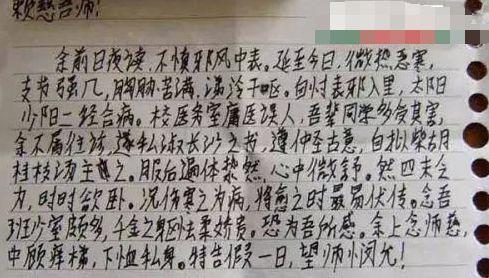 慈吾师:
余前日夜读,不慎邪风中表。延至今日,微热恶寒,
支节强几,胸胁苦满,涕泠干呕。自忖表邪入里,太阳
少阳二经合病。校医务室庸医误人,吾辈同学多受其害,
余不屑往诊,遂私淑长沙之书,遵仲圣古意,自拟柴胡
桂枝汤主之。服后遍体漐然,心中微舒。然四末乏
力,时时欲卧。况伤寒之为病,将愈之时最易伏传。念吾
班少室颇多,千金之躯怯柔娇贵。恐为吾所感。余上念师慈,
中顾 梯,下恤私身。特告假一日,望师 闵允!